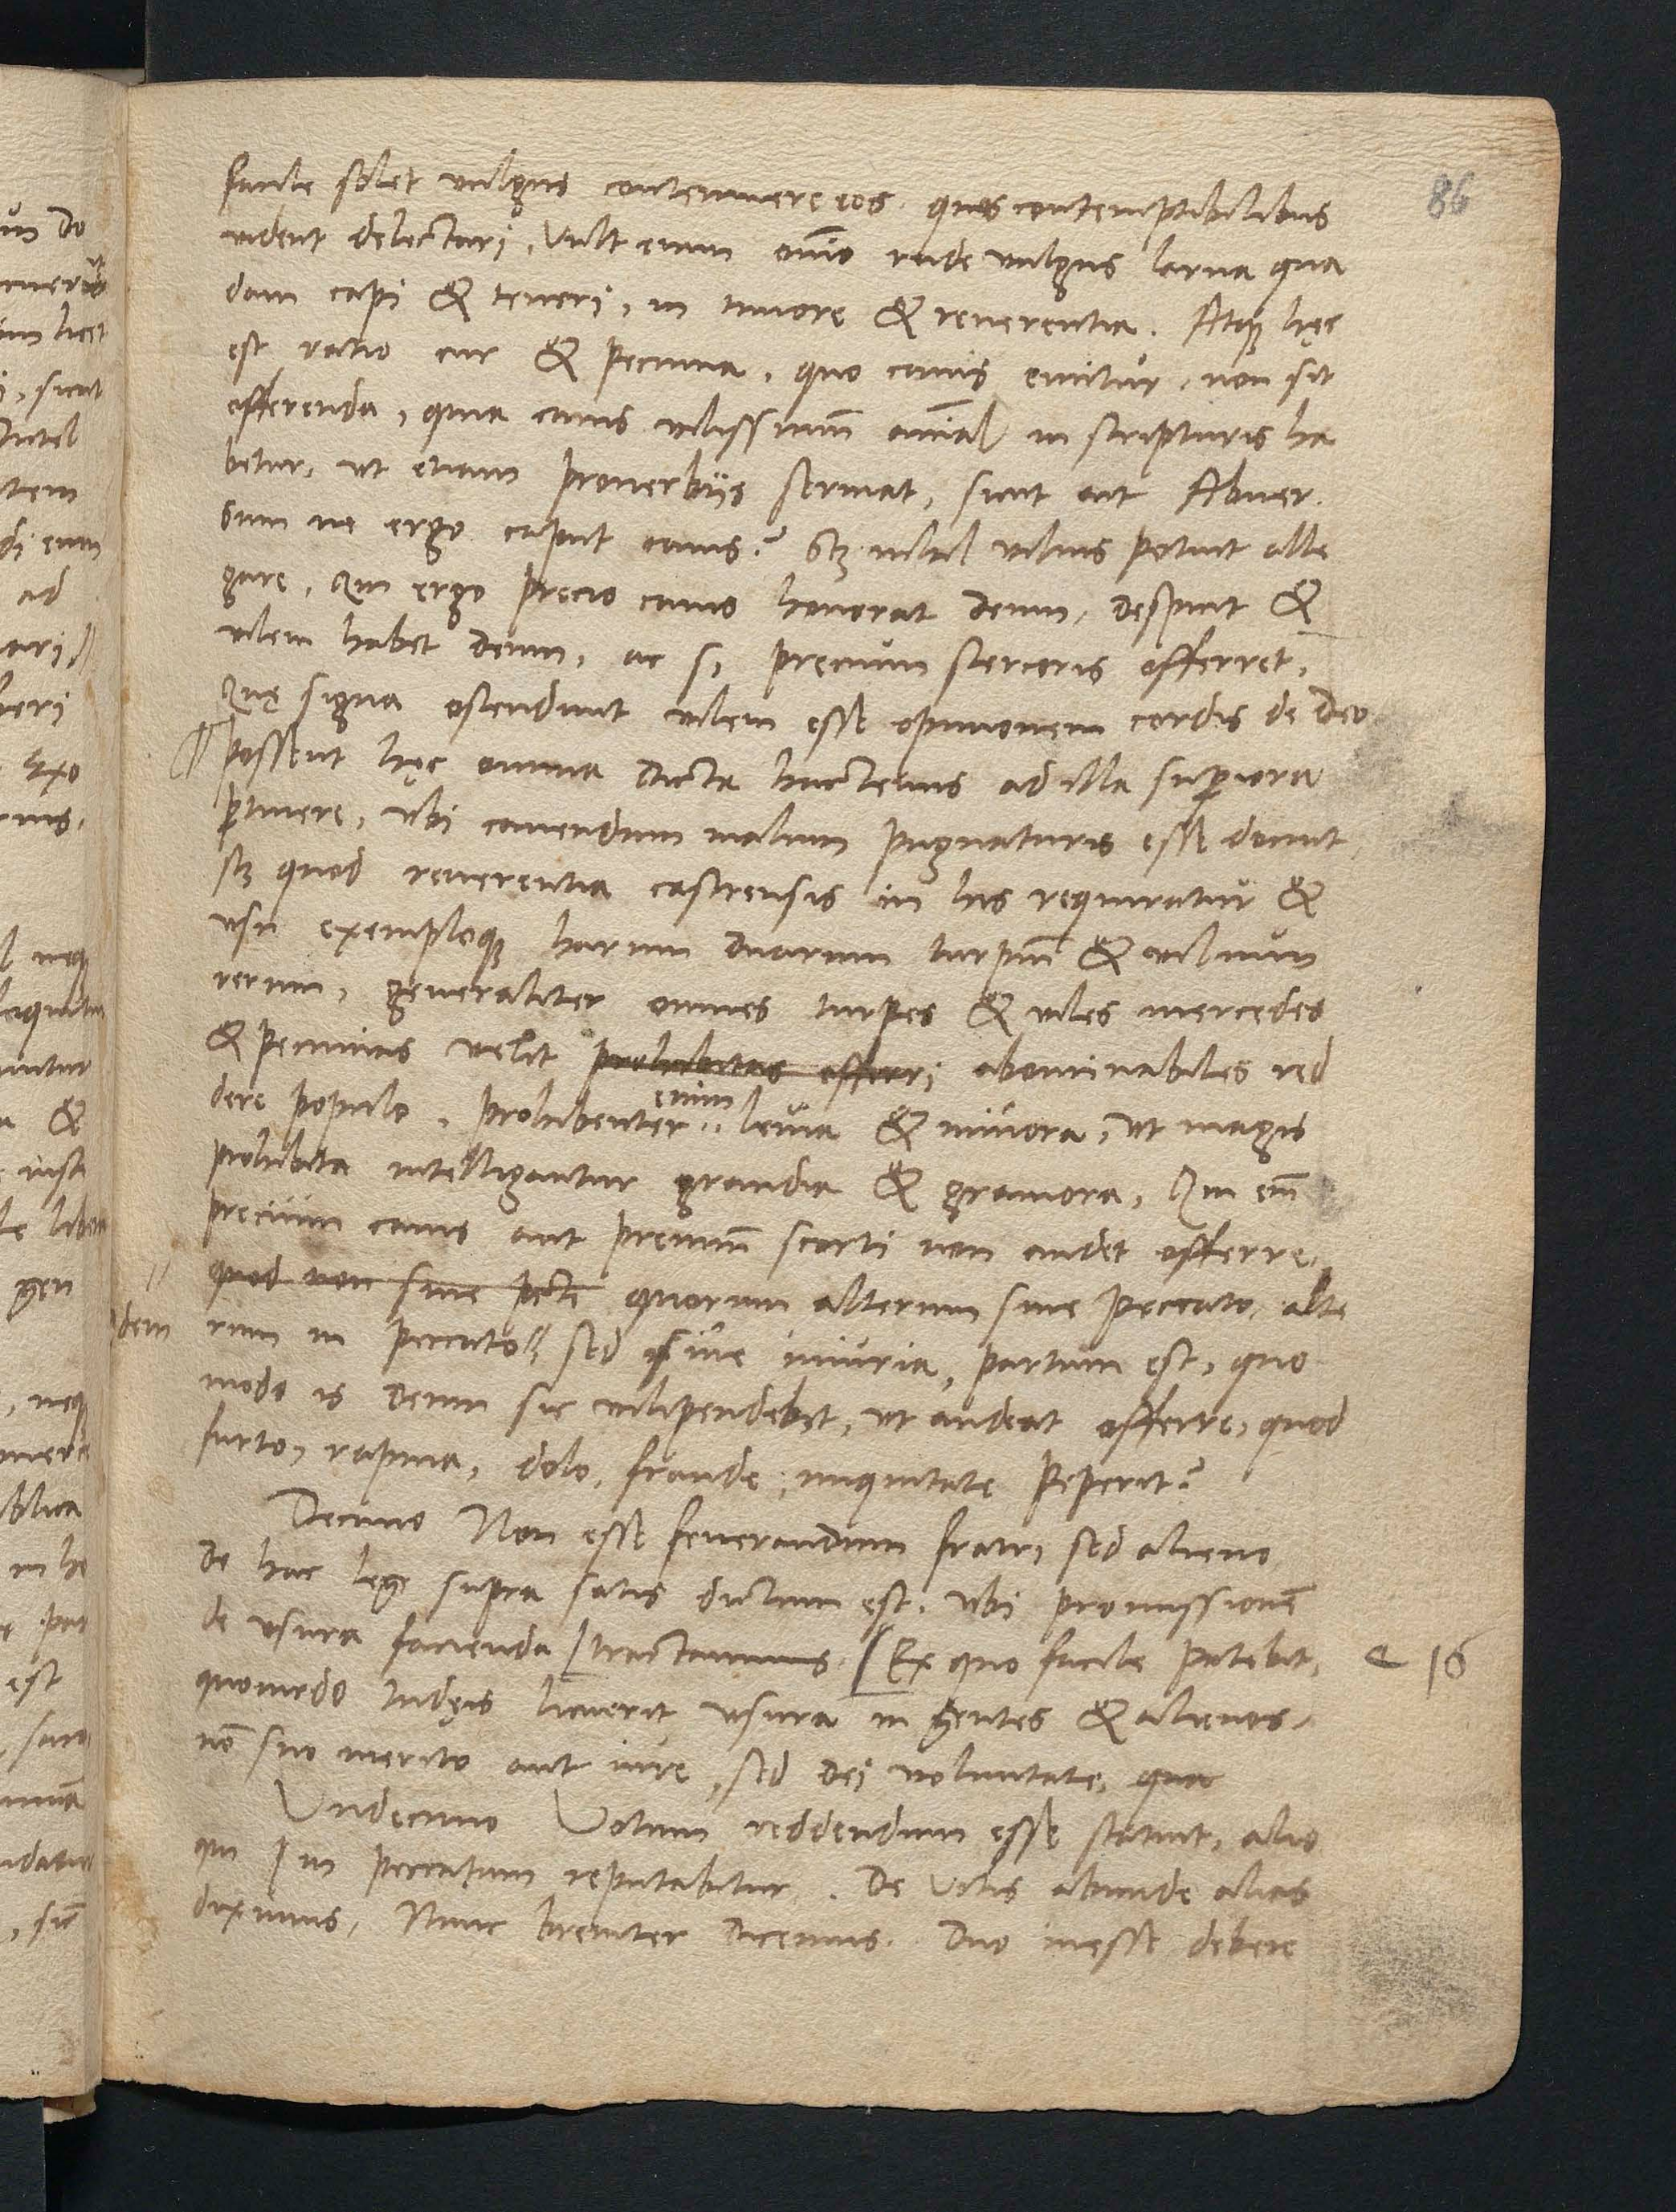 86
facile solet vulgus contemnere eos. quos contemptibilibus
vident delectari, Vult enim omnino rude vulgus larua qua
dam capi & teneri, in timore & reuerentia. Atque hęc
est ratio cur & pecunia, quo canis emitur, non sit
offerenda, quia canis vilissimum animal in scripturis ha
betur, vt etiam prouerbijs seruiat, sicut ait Abner.
sum ne ergo caput canis? Scz nihil vilius potuit alle
gare, Qui ergo precio canis honorat deum, despicit &
vilem habet deum, ac si, precium stercoris offerret,
Quę signa ostendunt vilem esse opinionem cordis de Deo
possent hęc omnia dicta hactenus ad illa superiora
pertinere, vbi cauendum malum pugnaturis esse docuit,
scz quod reuerentia castrensis in his requiratur &
vsu exemploque harum duarum turpium & vilium
rerum, generaliter omnes turpes & viles mercedes
& pecunias velit prohibitas offerri abominabiles red
dere populo, prohibenter enim leuia & minora, vt magis
prohibita intelligantur grandia & grauiora, Qui enim
precium canis aut premium scorti non audet offerre,
quod non sine pecti quorum alterum sine peccato, alte
rum in peccato sed sine iniuria, partum est, quo
modo is deum sic vilipendebit, vt audeat offerre, quod
furto, rapina, dolo, fraude, iniquitate peperit?
Decimo Non esse fenerandum fratri sed alieno
De hac lege supra satis dictum est, vbi promissionem
de vsura facienda tractauimus. Ex quo facile patebit,
16
quomodo Iudęis licuerit vsura in gentes & alienos,
non suo merito aut iure, sed dei voluntate, qua
Vndecimo Votum reddendum esse statuit, alio
qui in peccatum reputabitur. De Votis abunde alias
diximus, Nunc breuiter dicemus. Duo inesse debere